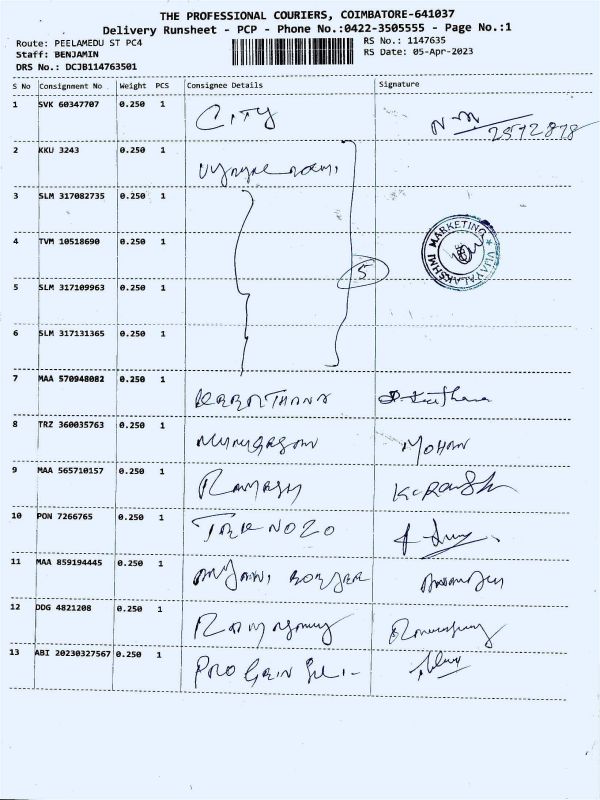 THE PROFESSIONAL COURIERS, COIMBATORE-641037
Delivery Runsheet - PCP - Phone No.:0422-3505555 - Page No.:1
Route: PEELAMEDU ST PC4
RS No.: 1147635
Staff: BENJAMIN
RS Date: 05-Apr-2023
DRS No.: DCJB114763501
S No Consignment No Weight PCS Consignee Details Signature
1 SVK 60347707 0.250 1 CITY 2592878
2 KKU 3243 0.250 1
3 SLM 317082735 0.250 1
4 TVM 10518690 0.250 1
VIJAYALAKSHMI MARKETING
5 SLM 317109963 0.250 1 5
6 SLM 317131365 0.250 1
7 MAA 570948082 0.250 1
8 TRZ 360035763 0.250 1 MOHAN
9 MAA 565710157 0.250 1 Ramesh
10 PON 7266765 0.250 1
11 MAA 859194445 0.250 1
12 DDG 4821208 0.250 1
13 ABI 20230327567 0.250 1